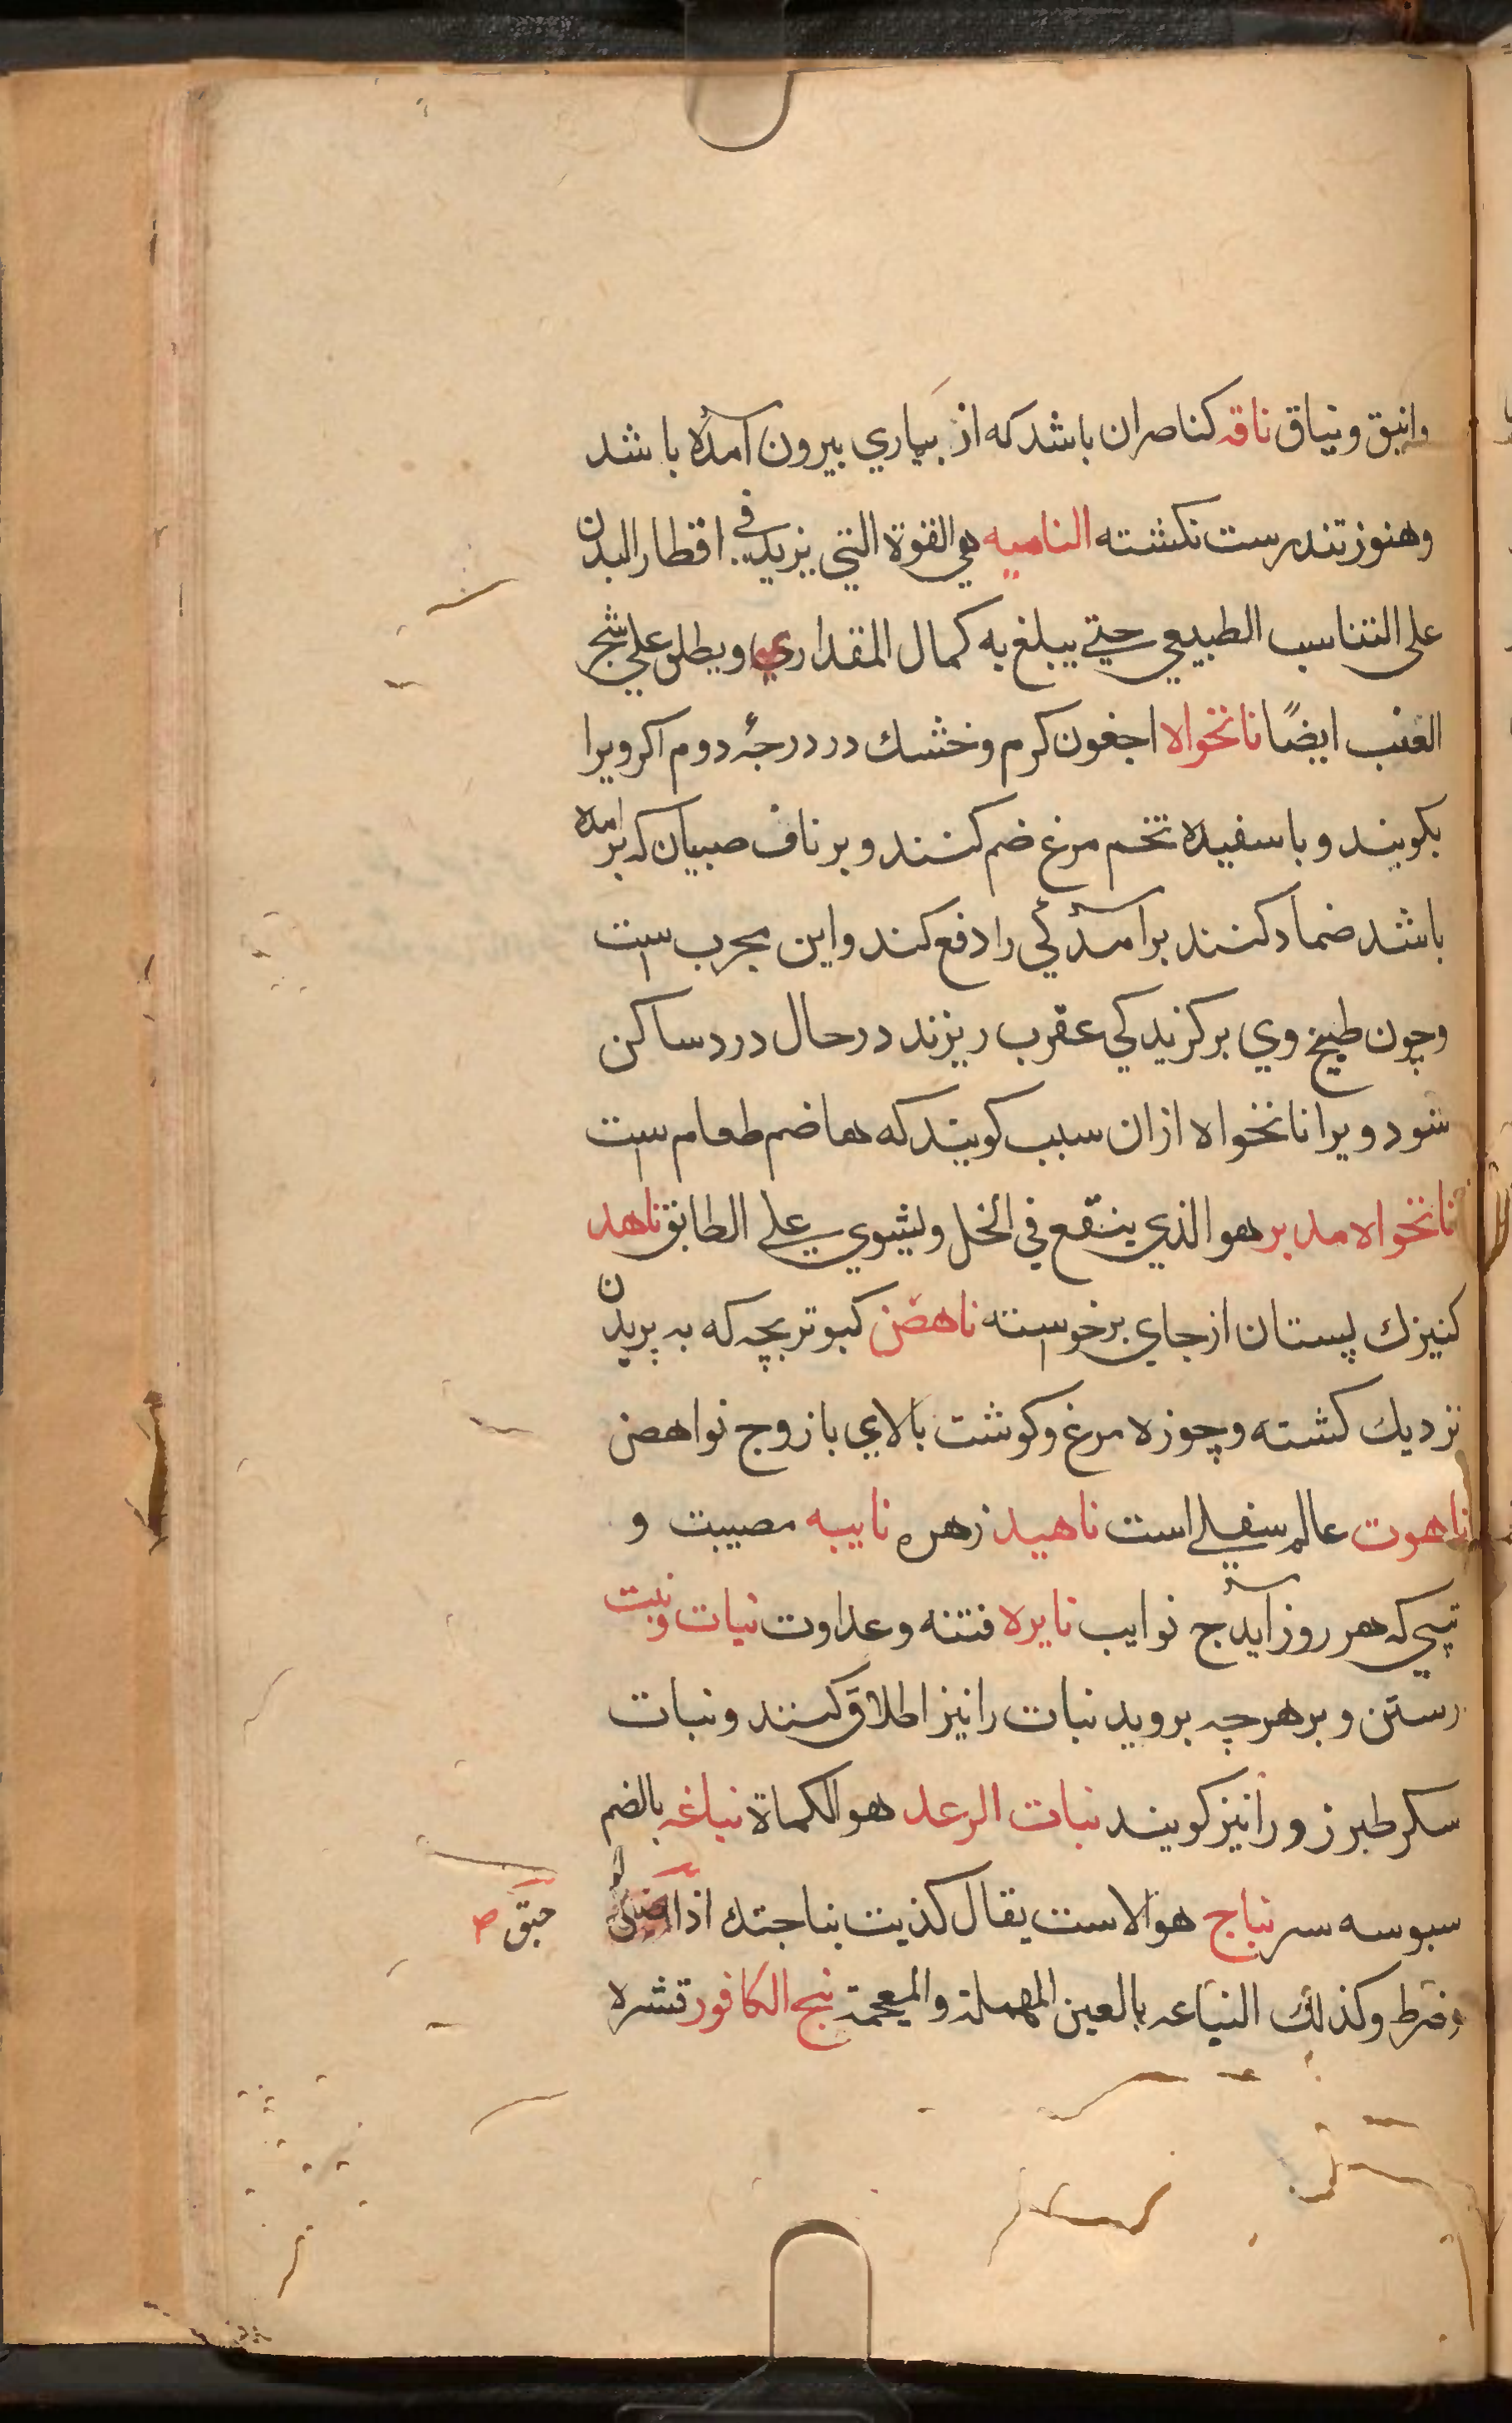 وانيق ونياق ناقه كناصران باشد كه از بيماري بيرون آمده باشد
وهنوز تندرست نكشته الناميه هي القوة التي يزيد في اقطار البدن
على التناسب الطبيعي حتي يبلغ به كمال المقداري ويطلق علي شجر
العنب ايضًا نانخواه اجغون كرم وخشك در درجهٔ دوم اكر ويرا
بكويند وبا سفيده تخم مرغ ضم كنند وبر ناف صبيان كه بر امده
باشد ضماد كنند برآمدكي را دفع كند واين مجرب ست
وچون طبيخ وي بر كزيدكي عقرب ريزند در حال درد ساكن
شود ويرا نانخواه ازان سبب كويند كه هاضم طعام ست
نانخواه مدبر هو الذي ينقع في الخل ويشوي علي الطابق ناهد
كنيزك پستان از جاي برخواسته ناهض كبوتر بچه كه به پريدن
نزديك كشته وچوزه مرغ وكوشت بالاي بازو ج نواهض
ناهوت عالم سفلي است ناهيد زهره نايبه مصيبت و
تپي كه هر روز آيد ج نوايب نايره فتنه وعداوت نبات ونبت
رستن وبر هرچه برويد نبات را نيز اطلاق كنند ونبات
سكر طبرزو را نيز كويند نبات الرعد هو الكماة نباغه بالضم
سبوسه سر نباج هو الاست يقال كذبت نباجتك اذا
حبق ص
وضرط وكذلك النباعه بالعين المهملة والمعجمة نبج الكافور قشره